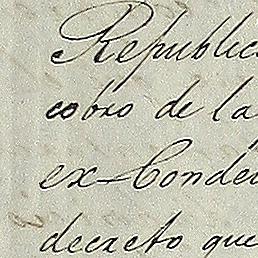 Republic
cobro de la
ex-Conde
decreto que